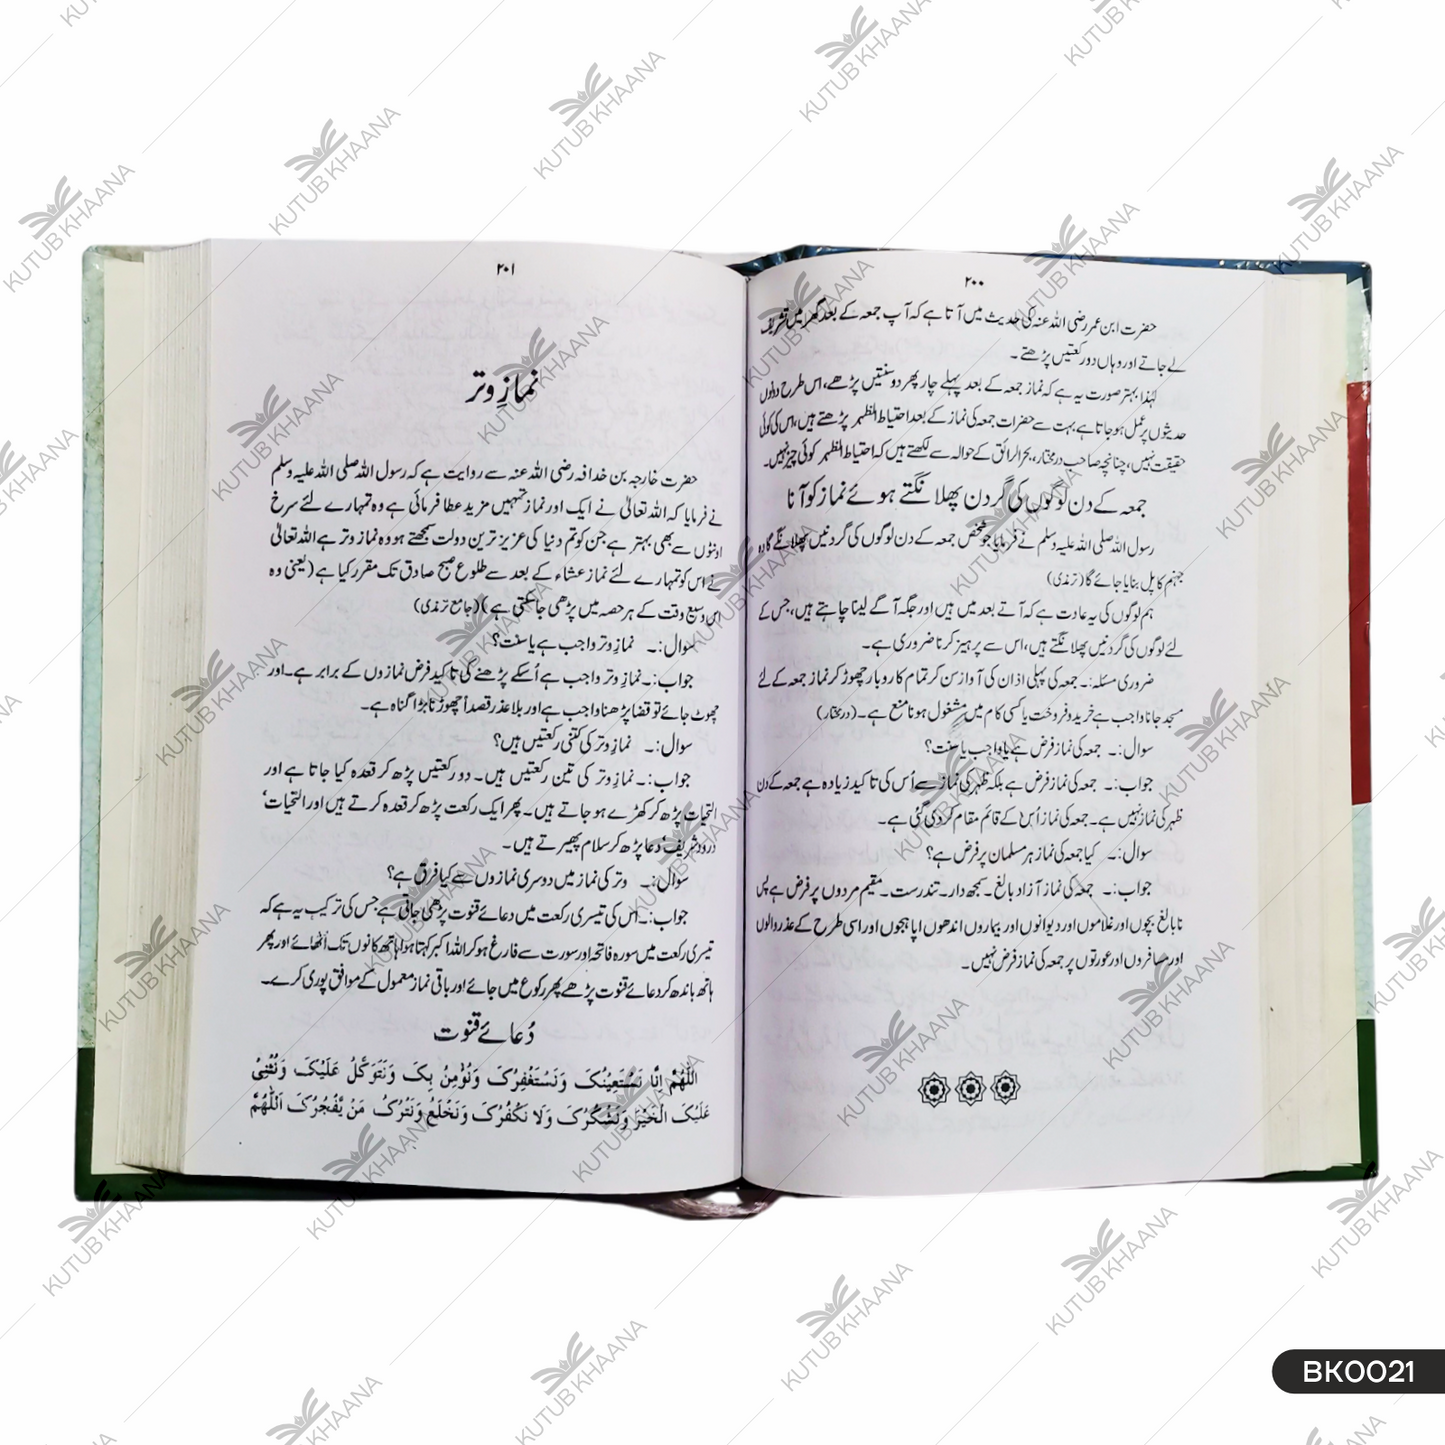 ۲۰۰
حضرت ابن عمر رضی اللہ عنہ کی حدیث میں آتا ہے کہ آپ جمعہ کے بعد گھر میں تشریف
لے جاتے اور وہاں دو رکعتیں پڑھتے ۔
لہٰذا بہتر صورت یہ ہے کہ نماز جمعہ کے بعد پہلے چار پھر دو سنتیں پڑھے، اس طرح دونوں
حدیثوں پر عمل ہو جاتا ہے، بہت سے حضرات جمعہ کی نماز کے بعد احتیاط الظہر پڑھتے ہیں، اس کی کوئی
حقیقت نہیں، چنانچہ صاحب درمختار، بحر الرائق کے حوالہ سے لکھتے ہیں کہ احتیاط الظہر کوئی چیز نہیں۔
جمعہ کے دن لوگوں کی گردن پھلانگتے ہوئے نماز کو آنا
رسول اللہ صلی اللہ علیہ وسلم نے فرمایا جو شخص جمعہ کے دن لوگوں کی گردنیں پھلانگے گا وہ
جہنم کا پل بنایا جائے گا (ترمذی)
ہم لوگوں کی یہ عادت ہے کہ آتے بعد میں ہیں اور جگہ آگے لینا چاہتے ہیں، جس کے
لئے لوگوں کی گردنیں پھلانگتے ہیں، اس سے پرہیز کرنا ضروری ہے۔
ضروری مسئلہ:۔ جمعہ کی پہلی اذان کی آواز سن کر تمام کاروبار چھوڑ کر نماز جمعہ کے لئے
مسجد جانا واجب ہے خرید و فروخت یا کسی کام میں مشغول ہونا منع ہے۔ (درمختار)
سوال:۔ جمعہ کی نماز فرض ہے یا واجب یا سنت؟
جواب:۔ جمعہ کی نماز فرض ہے بلکہ ظہر کی نماز سے اُس کی تاکید زیادہ ہے جمعہ کے دن
ظہر کی نماز نہیں ہے۔ جمعہ کی نماز اُس کے قائم مقام کر دی گئی ہے۔
سوال:۔ کیا جمعہ کی نماز ہر مسلمان پر فرض ہے؟
جواب:۔ جمعہ کی نماز آزاد بالغ۔ سمجھ دار۔ تندرست۔ مقیم مردوں پر فرض ہے پس
نابالغ بچوں اور غلاموں اور دیوانوں اور بیماروں اندھوں اپاہجوں اور اسی طرح کے عذر والوں
اور مسافروں اور عورتوں پر جمعہ کی نماز فرض نہیں۔
۲۰۱
نمازِ وتر
حضرت خارجہ بن خدافہ رضی اللہ عنہ سے روایت ہے کہ رسول اللہ صلی اللہ علیہ وسلم
نے فرمایا کہ اللہ تعالیٰ نے ایک اور نماز تمہیں مزید عطا فرمائی ہے وہ تمہارے لئے سرخ
اونٹوں سے بھی بہتر ہے جن کو تم دنیا کی عزیز ترین دولت سمجھتے ہو وہ نماز وتر ہے اللہ تعالیٰ
نے اس کو تمہارے لئے نماز عشاء کے بعد سے طلوع صبح صادق تک مقرر کیا ہے (یعنی وہ
اس وسیع وقت کے ہر حصہ میں پڑھی جا سکتی ہے) (جامع ترمذی)
سوال:۔ نمازِ وتر واجب ہے یا سنت؟
جواب:۔ نمازِ وتر واجب ہے اُسکے پڑھنے کی تاکید فرض نمازوں کے برابر ہے۔ اور
چھوٹ جائے تو قضا پڑھنا واجب ہے اور بلا عذر قصداً چھوڑنا بڑا گناہ ہے۔
سوال:۔ نمازِ وتر کی کتنی رکعتیں ہیں؟
جواب:۔ نمازِ وتر کی تین رکعتیں ہیں۔ دو رکعتیں پڑھ کر قعدہ کیا جاتا ہے اور
التحیات پڑھ کر کھڑے ہو جاتے ہیں۔ پھر ایک رکعت پڑھ کر قعدہ کرتے ہیں اور التحیات'
درود شریف' دعا پڑھ کر سلام پھیرتے ہیں۔
سوال:۔ وتر کی نماز میں دوسری نمازوں سے کیا فرق ہے؟
جواب:۔ اس کی تیسری رکعت میں دعائے قنوت پڑھی جاتی ہے جس کی ترکیب یہ ہے کہ
تیسری رکعت میں سورہ فاتحہ اور سورت سے فارغ ہو کر اللہ اکبر کہتا ہوا ہاتھ کانوں تک اُٹھائے اور پھر
ہاتھ باندھ کر دعائے قنوت پڑھے پھر رکوع میں جائے اور باقی نماز معمول کے موافق پوری کرے۔
دُعائے قنوت
اَللّٰهُمَّ اِنَّا نَسْتَعِيْنُكَ وَنَسْتَغْفِرُكَ وَنُؤْمِنُ بِكَ وَنَتَوَكَّلُ عَلَيْكَ وَنُثْنِىْ
عَلَيْكَ الْخَيْرَ وَنَشْكُرُكَ وَلَا نَكْفُرُكَ وَنَخْلَعُ وَنَتْرُكُ مَنْ يَّفْجُرُكَ اَللّٰهُمَّ
KUTUB KHAANA
BK0021